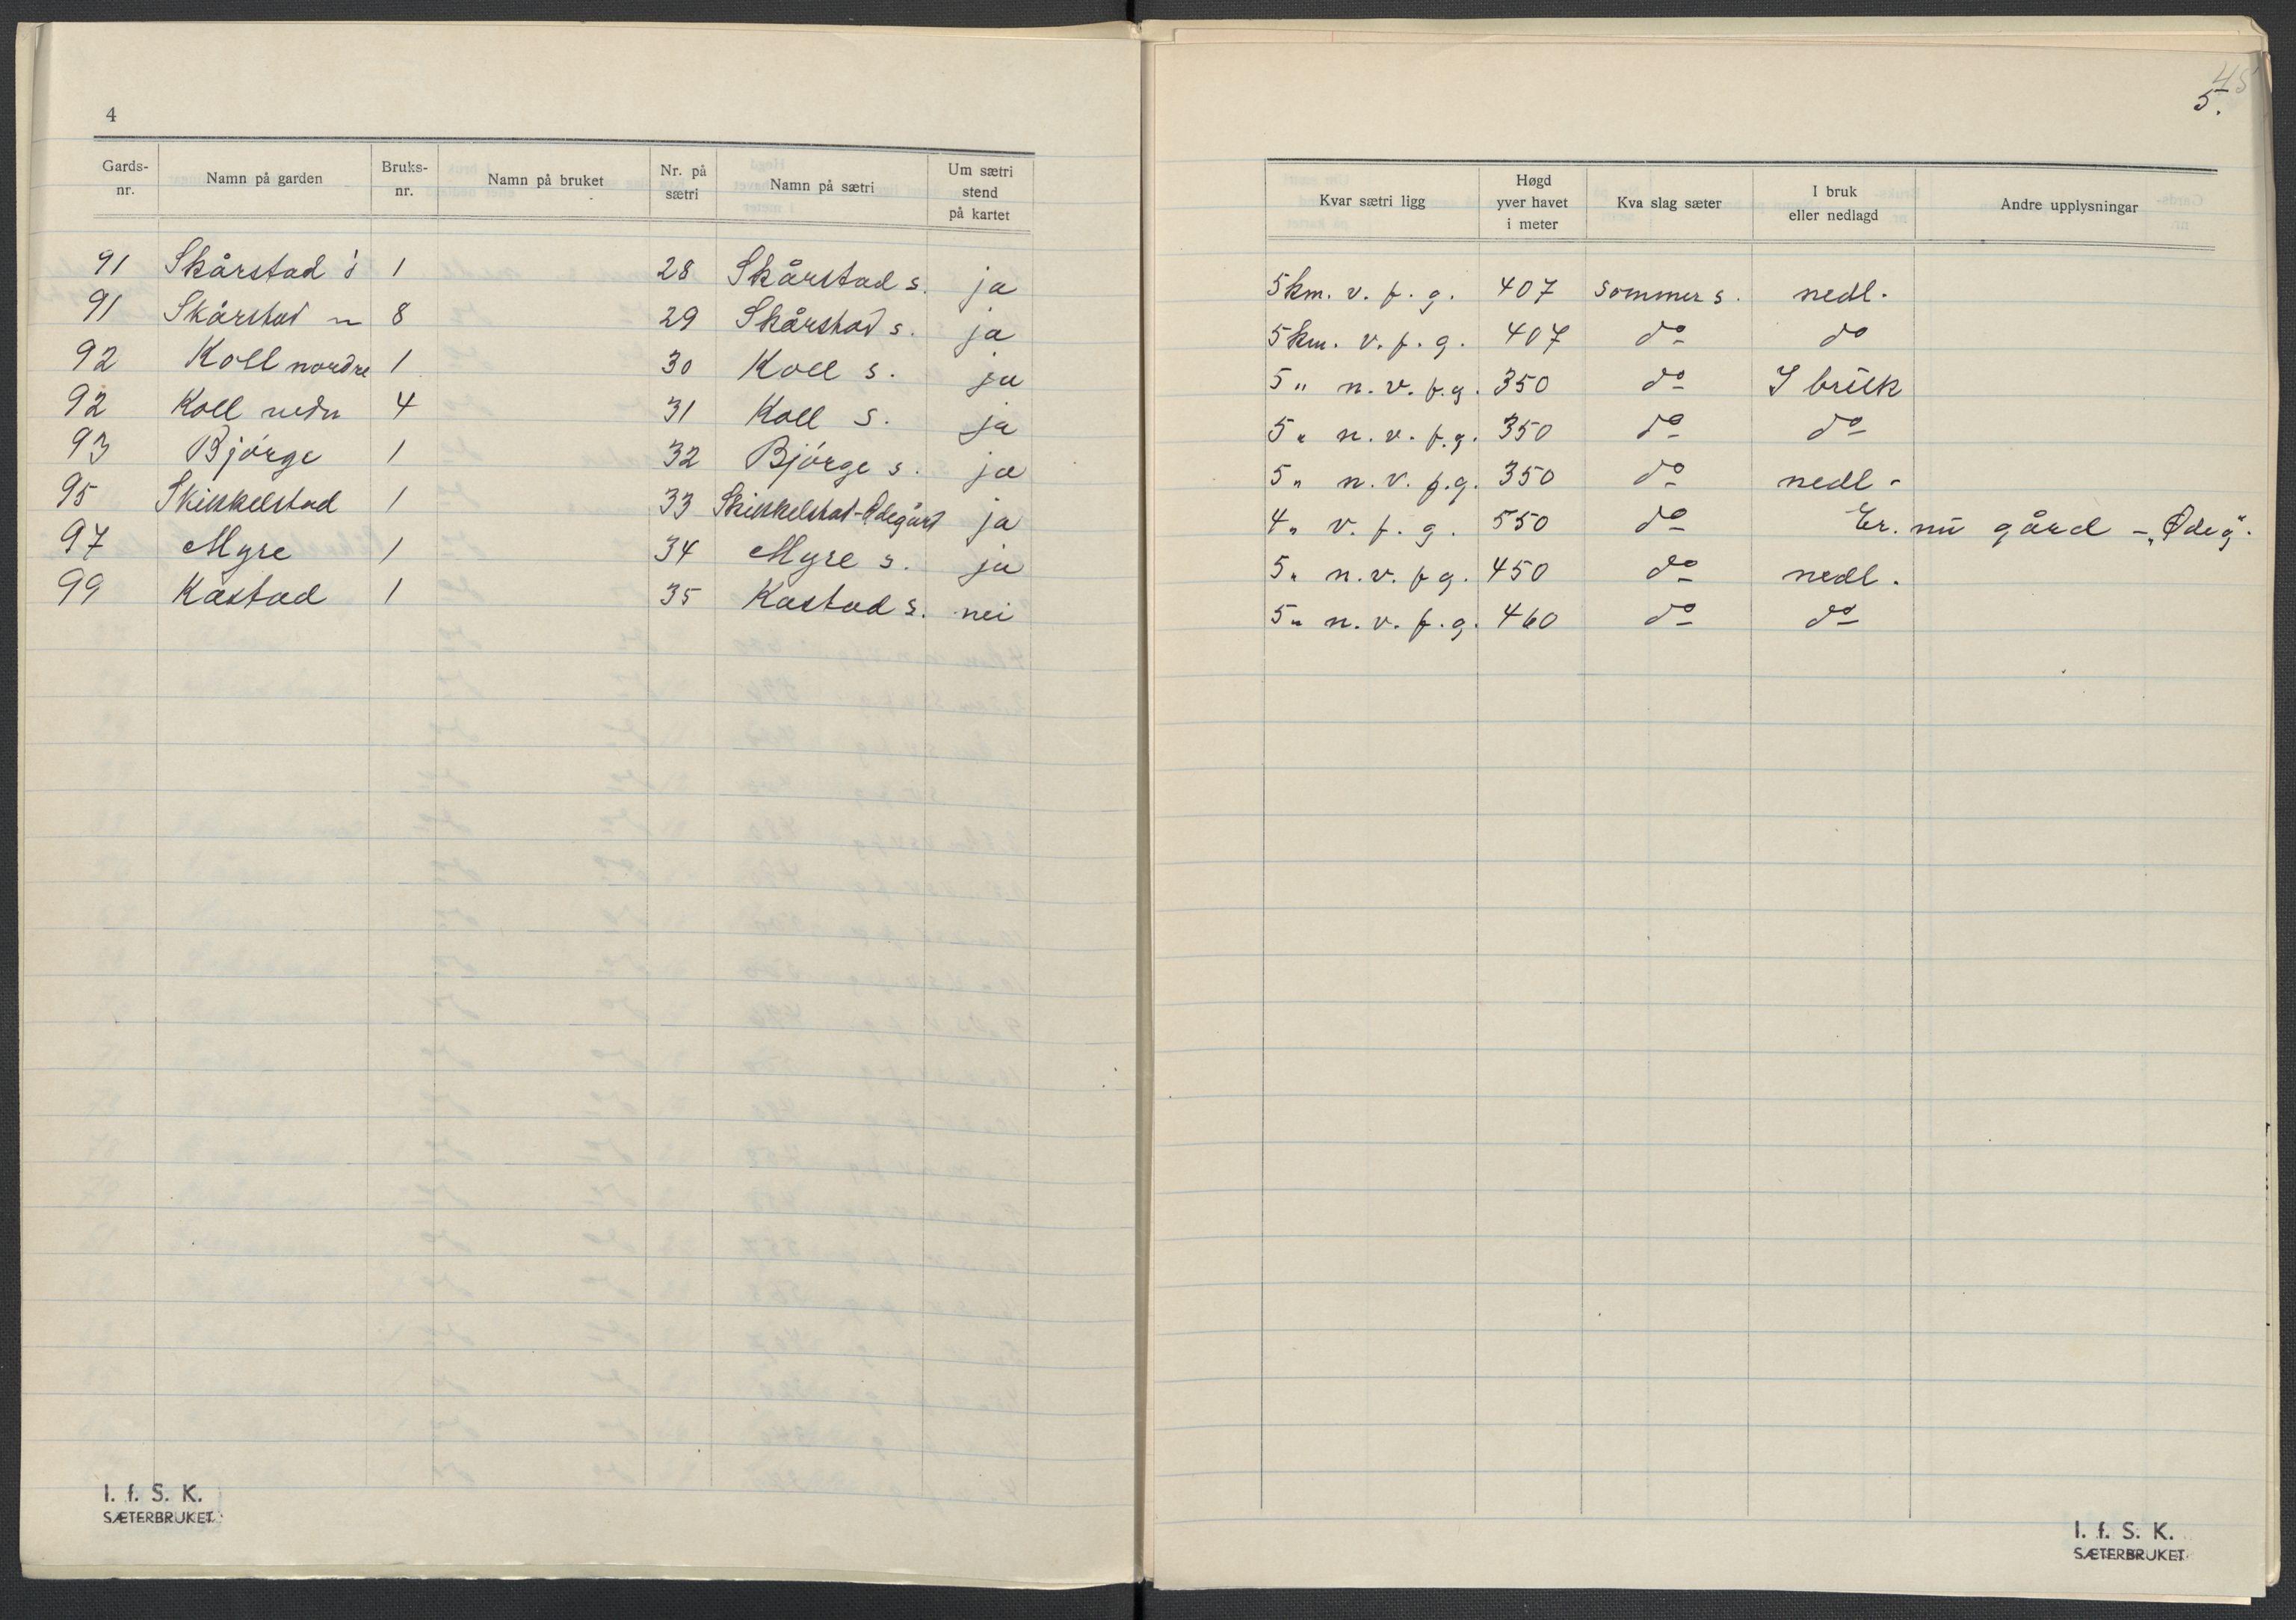 4
Gards-nr. Namn på garden Bruks-nr. Namn på bruket Nr. på sætri Namn på sætri Um sætri stend på kartet
91 Skårstad 1 28 Skårstad s. ja
91 Skårstad 8 29 Skårstad s. ja
92 Koll nordre 1 30 Koll s. ja
92 Koll nedr 4 31 Koll s. ja
93 Bjørge 1 32 Bjørge s. ja
95 Skikkelstad 1 33 Skikkelstad-Ødegård ja
97 Myre 1 34 Myre s. ja
99 Kastad 1 35 Kastad s. nei
I. f. S. K.
SÆTERBRUKET
45
5.
Kvar sætri ligg Høgd yver havet i meter Kva slag sæter I bruk eller nedlagd Andre upplysningar
5 km. v. f. g. 407 sommer s. nedl.
5 km. v. f. g. 407 do do
5 " n. v. f. g. 350 do I bruk
5 " n. v. f. g. 350 do do
5 " n. v. f. g. 350 do nedl.
4 " v. f. g. 550 do Er nu gård - "Ødeg".
5 " n. v. f g. 450 do nedl.
5 " n. v. f. g. 460 do do
I. f. S. K.
SÆTERBRUKET